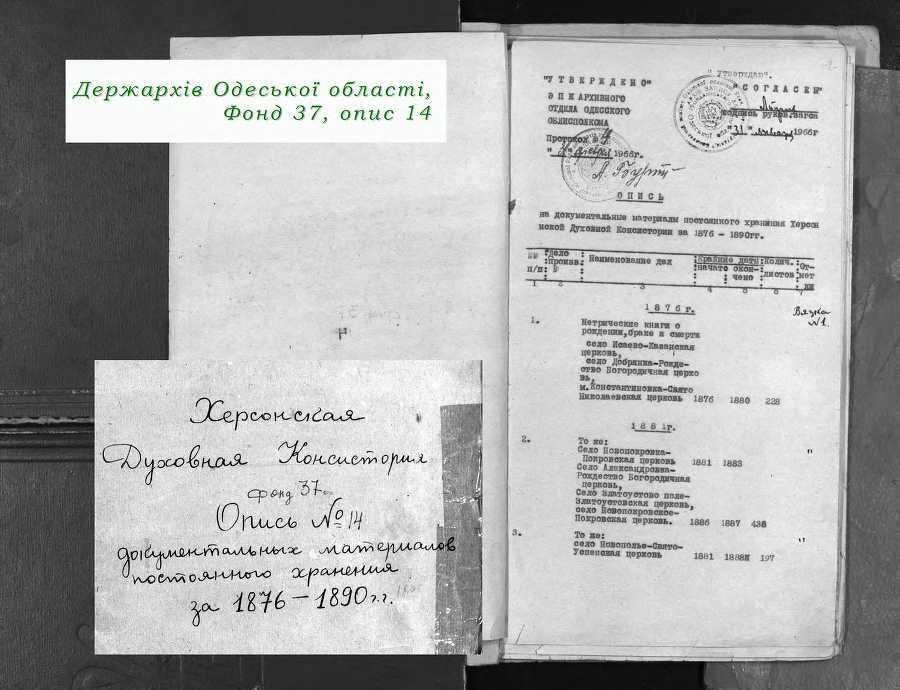 Держархів Одеської області,
Фонд 37, опис 14
Херсонская
Духовная Консистория
Фонд 37
Опись № 14
документальных материалов
постоянного хранения
за 1876 – 1890 г.г.
"УТВЕРЖДЕНО"
ЭПК АРХИВНОГО
ОТДЕЛА ОДЕССКОГО
ОБЛИСПОЛКОМА
Протокол №
1966г.
"Утверждаю".
"СОГЛАСЕН"
подпись руков. загса
"31" января 1966г
ОПИСЬ
на документальные материалы постоянного хранения Херсон
ской Духовной Консистории за 1876 - 1890гг.
№№ п/п: Дело Произв. № Наименование дел Крайние даты начато окончено Колич. листов Отметки
1 2 3 4 5 6 7
1876г.
Вязка
№1.
1. Метрические книги о
рождении, браке и смерти
село Исаево-Казанская
церковь,
село Добрянка-Рожде-
ство Богородичная церко
вь,
м.Константиновка-Свято
Николаевская церковь 1876 1880 228
1881г.
2. То же:
Село Новопокровка-
Покровская церковь 1881 1883 "
Село Александровка-
Рождество Богородичная
церковь,
Село Златоустово поле-
Златоустовская церковь,
село Новопокровское-
Покровская церковь. 1886 1887 438
3. То же: "
село Новополье-Свято-
Успенская церковь 1881 1888 197